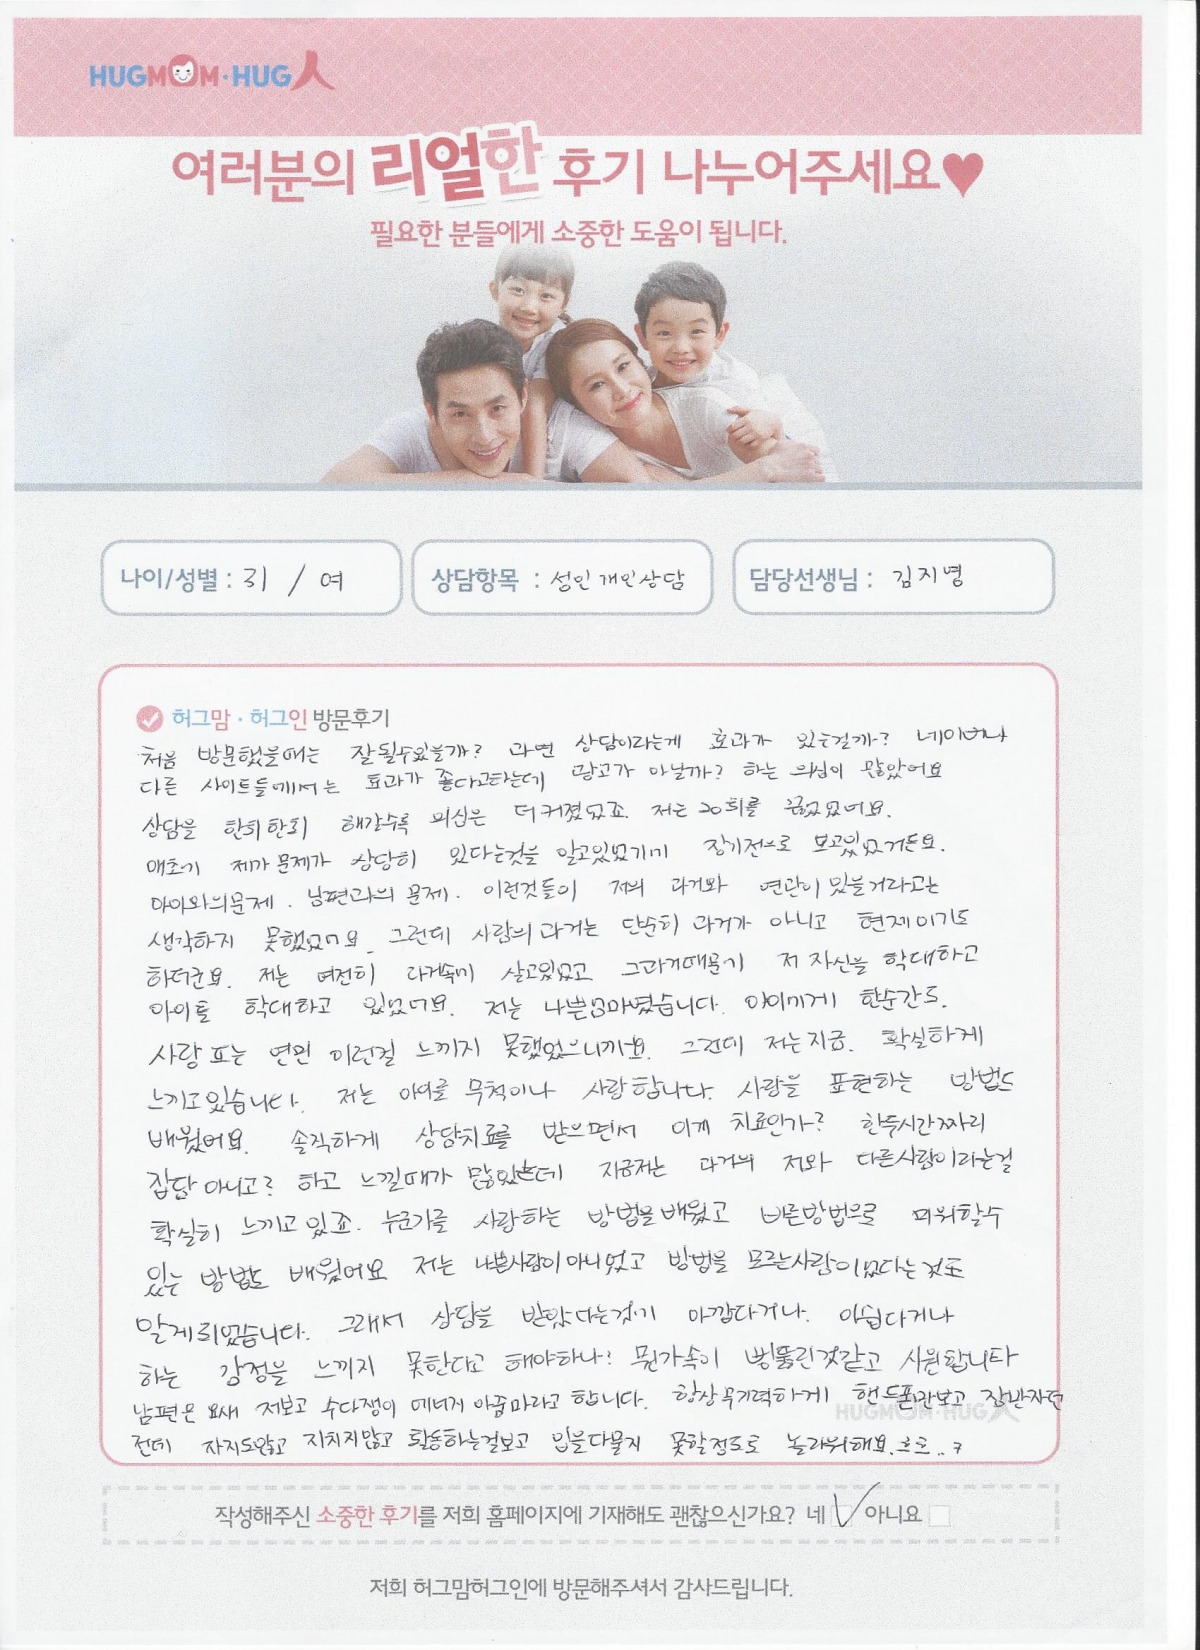 HUGMOM·HUG人
여러분의 리얼한 후기 나누어주세요♥
필요한 분들에게 소중한 도움이 됩니다.
나이/성별 : 31 / 여
상담항목 : 성인개인상담
담당선생님 : 김지명
허그맘·허그인 방문후기
처음 방문했을때는 잘될수있을까? 과연 상담이라는게 효과가 있는걸까? 네이버나
다른 사이트들에서는 효과가 좋다고하는데 광고가 아닐까? 하는 의심이 많았어요
상담을 한회한회 해갈수록 의심은 더커졌었죠. 저는 20회를 끊었었어요.
애초에 제가문제가 상당히 있다는것을 알고있었기에 장기전으로 보고있었거든요.
아이와의문제. 남편과의 문제. 이런것들이 저의 과거와 연관이 있을거라고는
생각하지 못했었어요. 그런데 사람의과거는 단순히 과거가 아니고 현재이기도
하더군요. 저는 여전히 과거속에 살고있었고 그과거때문에 저 자신을 학대하고
아이를 학대하고 있었어요. 저는 나쁜엄마였습니다. 아이에게 한순간도.
사랑 또는 연민 이런걸 느끼지 못했었으니까요. 그런데 저는지금. 확실하게
느끼고있습니다. 저는 아이를 무척이나 사랑합니다. 사랑을 표현하는 방법도
배웠어요. 솔직하게 상담치료를 받으면서 이게 치료인가? 한두시간짜리
잡담 아니고? 하고 느낄때가 많았는데 지금저는 과거의 저와 다른사람이라는걸
확실히 느끼고 있죠. 누군가를 사랑하는 방법을배웠고 바른방법으로 미워할수
있는 방법도 배웠어요 저는 나쁜사람이아니었고 방법을 모르는사람이었다는것도
알게되었습니다. 그래서 상담을 받았다는것이 아깝다거나. 아쉽다거나
하는 감정을 느끼지 못한다고 해야하나? 뭔가속이 뻥뚫린것같고 시원합니다
남편은 요새 저보고 수다쟁이 에너지 아줌마라고 합니다. 항상무기력하게 핸드폰만보고 잠만자던
전데 자지도않고 지치지않고 활동하는걸보고 입을다물지 못할정도로 놀라워해요.
HUGMOM·HUG人
작성해주신 소중한 후기를 저희 홈페이지에 기재해도 괜찮으신가요? 네 ✓ 아니요 □
저희 허그맘허그인에 방문해주셔서 감사드립니다.